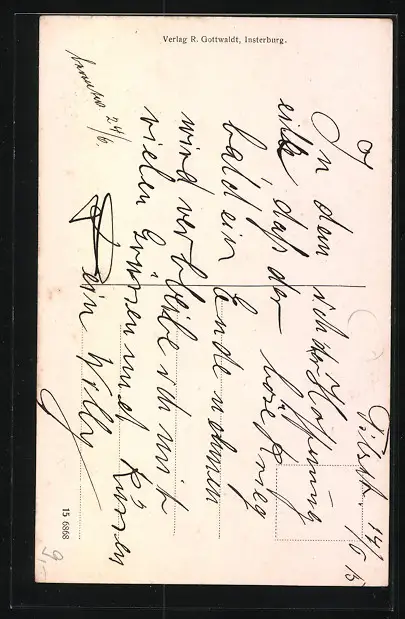 Verlag R. Gottwaldt, Insterburg.
Tilsit. 24/6 15
In dem sicher Hoffnung
eilt daß der böse Krieg
bald ein Ende nehmen
wird verbleibe ich mit
vielen Grüssen und Küssen
Dein Willy
24/6.
15 6868
9,-